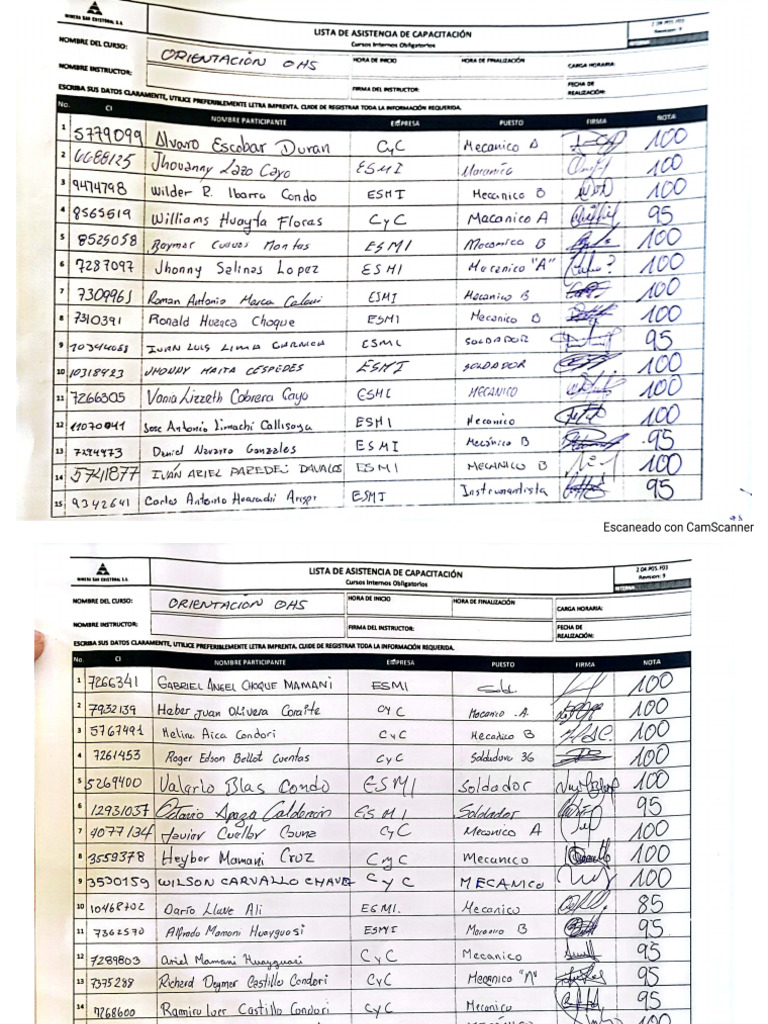 MINERA SAN CRISTOBAL S.A.
LISTA DE ASISTENCIA DE CAPACITACIÓN
Cursos Internos Obligatorios
2 OR.POS.F03
Revision: 9
NOMBRE DEL CURSO: ORIENTACIÓN OHS HORA DE INICIO HORA DE FINALIZACIÓN CARGA HORARIA:
NOMBRE INSTRUCTOR: FIRMA DEL INSTRUCTOR: FECHA DE REALIZACIÓN:
ESCRIBA SUS DATOS CLARAMENTE, UTILICE PREFERIBLEMENTE LETRA IMPRENTA. CUIDE DE REGISTRAR TODA LA INFORMACIÓN REQUERIDA.
No. CI NOMBRE PARTICIPANTE EMPRESA PUESTO FIRMA NOTA
1 5779099 Alvaro Escobar Duran CyC Mecanico A 100
2 6688125 Jhovanny Lazo Cayo ESMI Mecanico 100
3 9474798 Wilder R. Ibarra Condo ESMI Mecanico B 100
4 8565519 Williams Huayta Floras CyC Macanico A 95
5 8525058 Cuevas ESMI Mecanico B 100
6 7287097 Jhonny Salinas Lopez ESMI Mecanico "A" 100
7 7309961 Roman Antonio Marca ESMI Mecanico B 100
8 7310391 Ronald Huanca Choque ESMI Mecanico B 100
9 IVAN LUIS LIMA ESMI SOLDADOR 95
10 10318423 JHONNY MAITA CESPEDES ESMI SOLDADOR 100
11 7266305 Vania Lizzeth Cabrera Cayo ESMI MECANICO 100
12 11070041 Jose Antonio Limachi Callisaya ESMI Mecanico 100
13 7294473 Daniel Navarro Gonzales ESMI Mecánico B 95
14 5741877 IVÁN ARIEL PAREDES DAVALOS ESMI MECANICO B 100
15 9342641 Carlos Antonio Huarachi ESMI Instrumentista 95
Escaneado con CamScanner
MINERA SAN CRISTOBAL S.A.
LISTA DE ASISTENCIA DE CAPACITACIÓN
Cursos Internos Obligatorios
2 OR.POS.F03
Revision: 9
NOMBRE DEL CURSO: ORIENTACIÓN OHS HORA DE INICIO HORA DE FINALIZACIÓN CARGA HORARIA:
NOMBRE INSTRUCTOR: FIRMA DEL INSTRUCTOR: FECHA DE REALIZACIÓN:
ESCRIBA SUS DATOS CLARAMENTE, UTILICE PREFERIBLEMENTE LETRA IMPRENTA. CUIDE DE REGISTRAR TODA LA INFORMACIÓN REQUERIDA.
No. CI NOMBRE PARTICIPANTE EMPRESA PUESTO FIRMA NOTA
1 7266341 GABRIEL ANGEL CHOQUE MAMANI ESMI Sold. 100
2 7932139 Heber Juan Olivera Coraite CyC Mecanico A 100
3 5767491 Melina Aica Condori CyC Mecanico B 100
4 7261453 Roger Edson Bellot Cuentas CyC Soldadura 3G 100
5 5269400 Valerio Blas Condo ESMI Soldador 100
6 12931037 Octavio Apaza Calderón ESMI Soldador 95
7 4077134 Javier Cuellar CyC Mecanico A 100
8 3559378 Heyber Mamani Cruz CyC Mecanico 100
9 3530159 WILSON CARVALLO CHAVEZ CyC MECANICO 100
10 10468702 Darío Llave Ali ESMI. Mecanico 85
11 7362570 Alfredo Mamani Huayguasi ESMI Mecanico B 95
12 7289803 Ariel Mamani Huayguasi CyC Mecanico 95
13 7375288 Richard Deymer Castillo Condori CyC Mecanico "A" 95
14 7268600 Ramiro Iver Castillo Condori CyC Mecanico 95
100